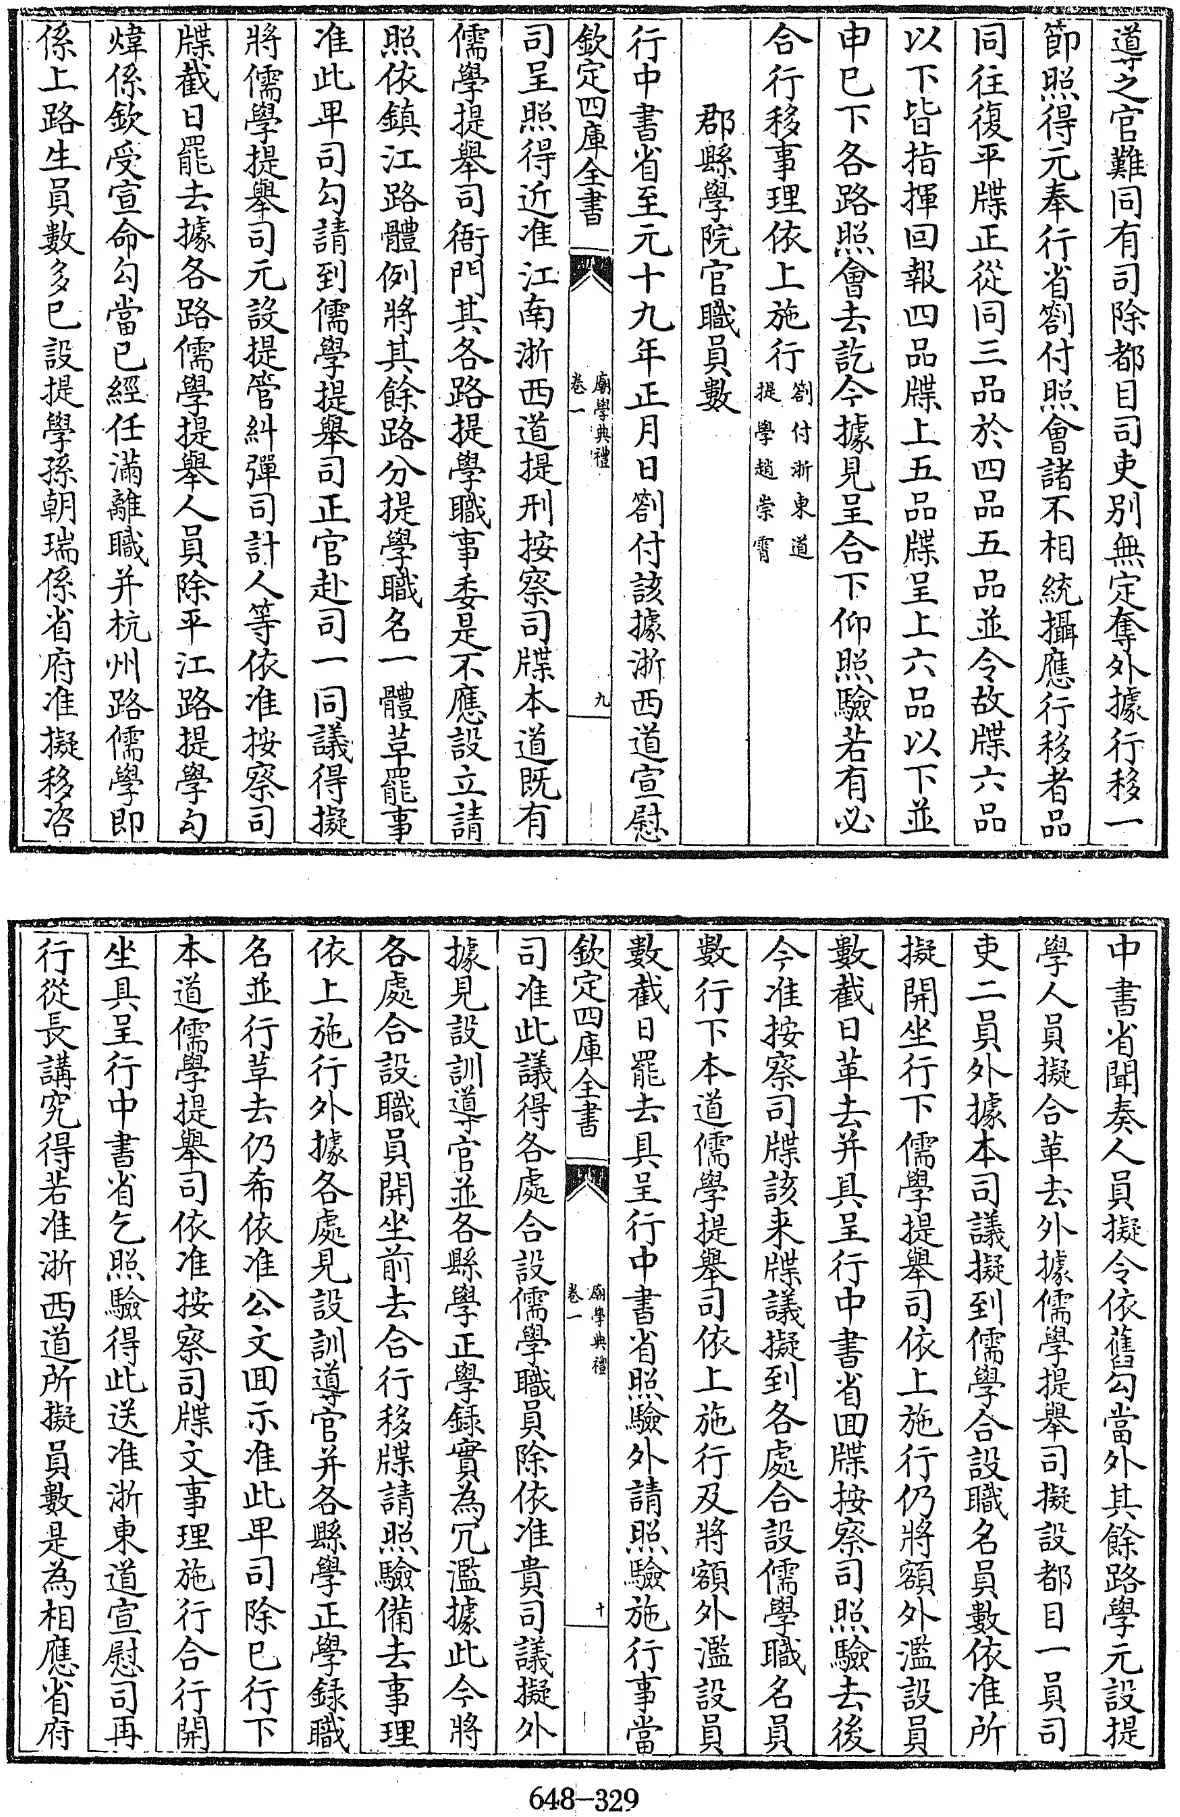 導之官難同有司除都目司吏别無定奪外據行移一
節照得元奉行省劄付照會諸不相統攝應行移者品
同往復平牒正從同三品於四品五品並令故牒六品
以下皆指揮回報四品牒上五品牒呈上六品以下並
申已下各路照會去訖今據見呈合下仰照驗若有必
合行移事理依上施行劄付浙東道提學趙崇霄
郡縣學院官職員數
行中書省至元十九年正月日劄付該據浙西道宣慰
欽定四庫全書
廟學典禮
卷一
九
司呈照得近准江南浙西道提刑按察司牒本道既有
儒學提舉司衙門其各路提學職事委是不應設立請
照依鎮江路體例將其餘路分提學職名一體革罷事
准此卑司勾請到儒學提舉司正官赴司一同議得擬
將儒學提舉司元設提管糾彈司計人等依准按察司
牒截日罷去據各路儒學提舉人員除平江路提學勾
煒係欽受宣命勾當已經任滿離職并杭州路儒學即
係上路生員數多已設提學孫朝瑞係省府准擬移咨
中書省聞奏人員擬令依舊勾當外其餘路學元設提
學人員擬合革去外據儒學提舉司擬設都目一員司
吏二員外據本司議擬到儒學合設職名員數依准所
擬開坐行下儒學提舉司依上施行仍將額外濫設員
數截日革去并具呈行中書省回牒按察司照驗去後
今准按察司牒該来牒議擬到各處合設儒學職名員
數行下本道儒學提舉司依上施行及將額外濫設員
數截日罷去具呈行中書省照驗外請照驗施行事當
欽定四庫全書
廟學典禮
卷一
十
司准此議得各處合設儒學職員除依准貴司議擬外
據見設訓導官並各縣學正學録實為冗濫據此今將
各處合設職員開坐前去合行移牒請照驗備去事理
依上施行外據各處見設訓導官并各縣學正學録職
名並行革去仍希依准公文回示准此卑司除已行下
本道儒學提舉司依准按察司牒文事理施行合行開
坐具呈行中書省乞照驗得此送准浙東道宣慰司再
行從長講究得若准浙西道所擬員數是為相應省府
648-329